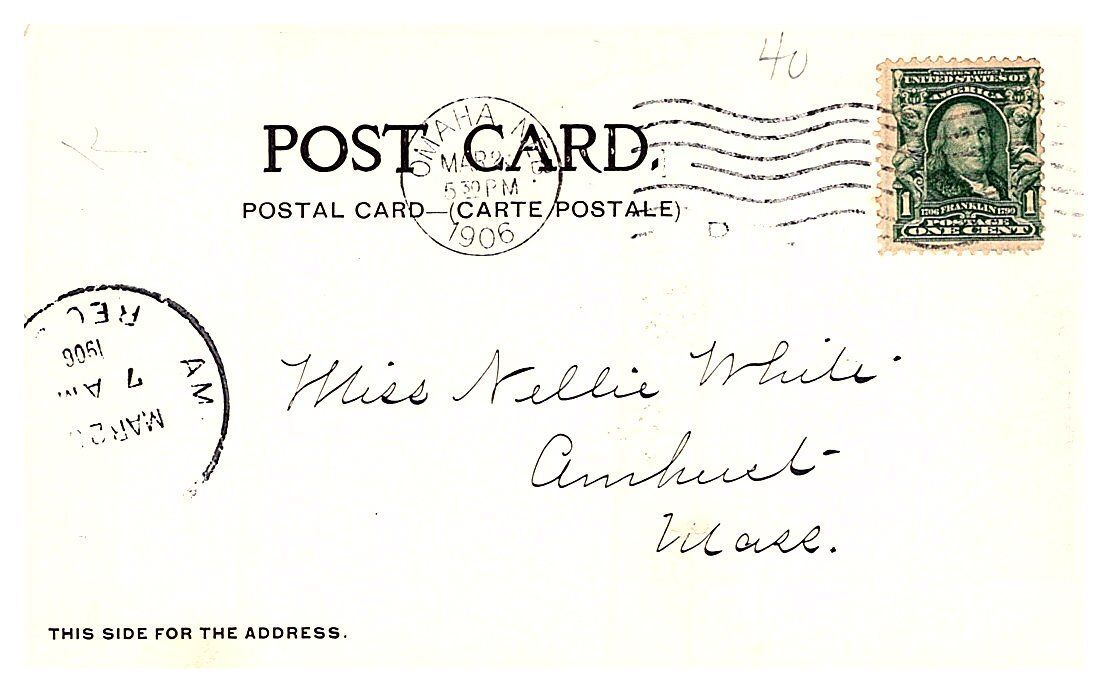 40
SERIES 1902
UNITED STATES OF
AMERICA
1 1706 FRANKLIN 1790 1
POSTAGE
ONE CENT
OMAHA
MAR 2
5 30 PM
1906
D
POST CARD.
POSTAL CARD—(CARTE POSTALE)
REC
1906
7 AM.
MAR 2
AM.
Miss Nellie White
Amherst
Mass.
THIS SIDE FOR THE ADDRESS.